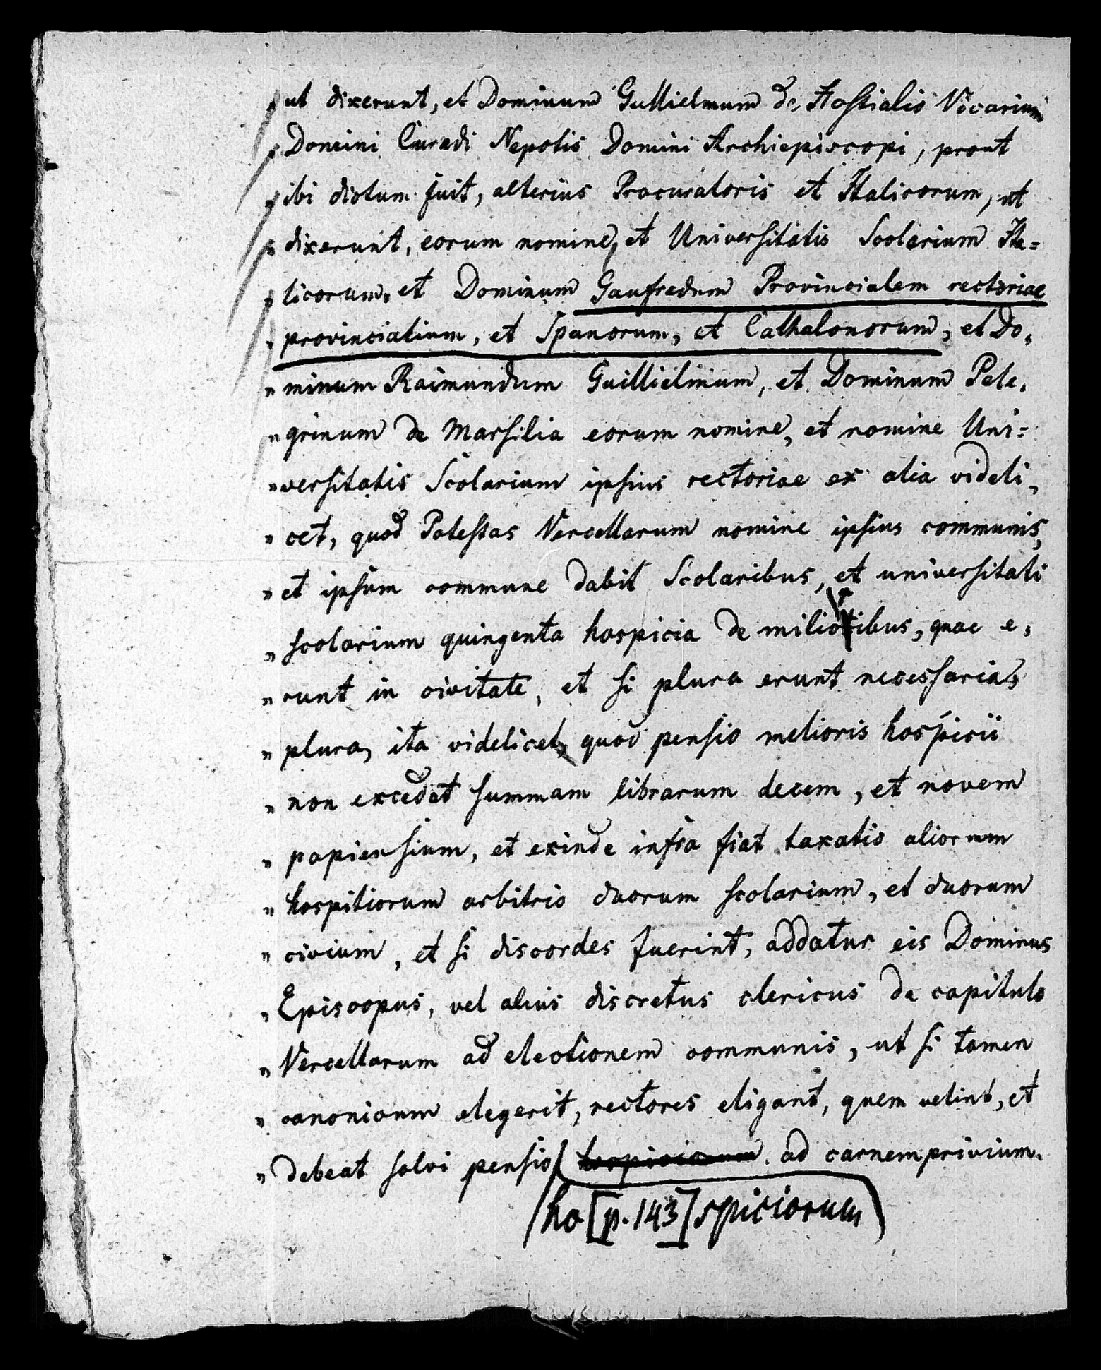 „ ut dixerunt, et Dominum Gullielmum de Hostialis Vicarium
„ Domini Curadi Nepotis Domini Archiepiscopi, prout
„ ibi dictum fuit, alterius Procuratoris et Italicorum, ut
„ dixerunt, eorum nomine, et Universitatis Scolarium Ita=
„ licorum, et Dominum Gaufredum Provincialem rectoriae
„ provincialium, et Spanorum, et Cathalonorum, et Do,
„ minum Raimundum Guillielmum, et Dominum Pele,
„ grinum de Marsilia eorum nomine, et nomine Uni=
„ versitatis Scolarium ipsius rectoriae ex alia videli,
„ cet, quod Potestas Vercellarum nomine ipsius communis,
„ et ipsum commune dabit Scolaribus, et universitati
„ scolarium quingenta hospicia de milioribus, quae e,
„ runt in civitate, et si plura erunt necessaria,
„ plura, ita videlicet, quod pensio melioris hospicii
„ non excedat summam librarum decem, et novem
„ papiensium, et exinde infra fiat taxatio aliorum
„ hospitiorum arbitrio duorum scolarium, et duorum
„ civium, et si discordes fuerint, addatur eis Dominus
„ Episcopus, vel alius discretus clericus de capitulo
„ Vercellarum ad electionem communis, ut si tamen
„ canonicum elegerit, rectores eligant, quem velint, et
„ debeat solvi pensio hospiciorum ad carnemprivium.
ho [p. 143] spiciorum